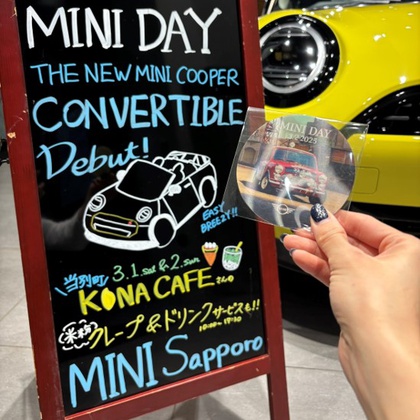 MINI DAY
THE NEW MINI COOPER
CONVERTIBLE
Debut!
EASY
BREEZY!!
当別町 3.1.sat & 2.sun
KONA CAFE さんの
米粉 クレープ&ドリンクサービスも!!
MINI Sapporo
MINI DAY
2025